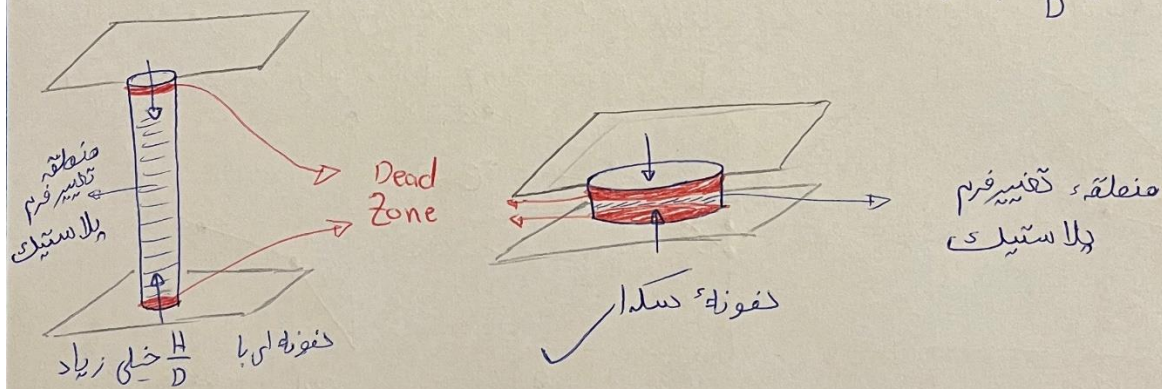 D
منطقه
تغییر فرم
پلاستیک
Dead
Zone
منطقهٔ تغییر فرم
پلاستیک
نمونه‌ای با H/D خیلی زیاد
نمونهٔ